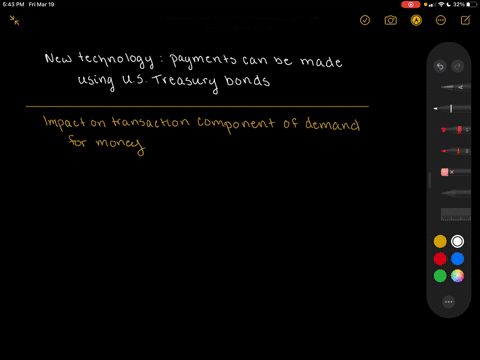 5:43 PM Fri Mar 19
32%
New technology : payments can be made
using U.S. Treasury bonds
Impact on transaction component of demand
for money